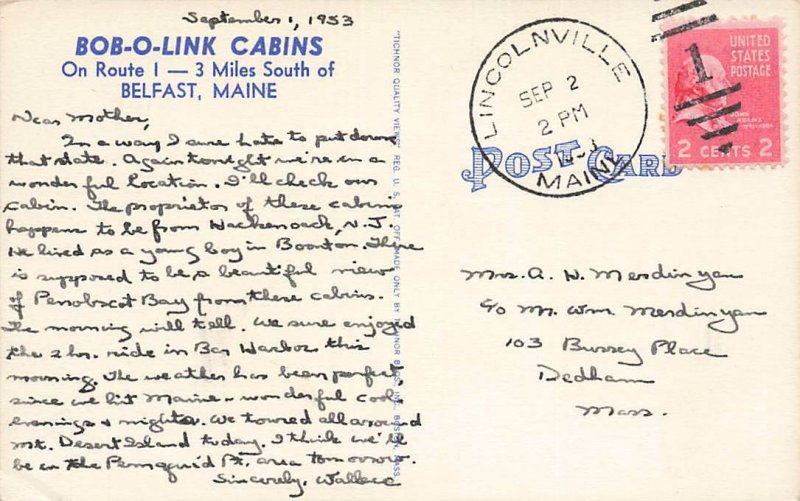 September 1, 1953
BOB-O-LINK CABINS
On Route 1 — 3 Miles South of
BELFAST, MAINE
Dear Mother,
In a way I sure hate to put down
that date. Again tonight we're in a
wonderful location. I'll check our
cabin. The proprietor of these cabins
happens to be from Hackensack, N.J.
He lived as a young boy in Boonton. There
is supposed to be a beautiful view
of Penobscot Bay from these cabins.
The morning will tell. We sure enjoyed
the 2 hr. ride in Bar Harbor this
morning. The weather has been perfect
since we hit Maine - wonderful cool
evenings & nights. We toured all around
Mt. Desert Island today. I think we'll
be in the Pemaquid Pt. area tomorrow.
Sincerely, Wallace
"TICHNOR QUALITY VIEWS" REG. U. S. PAT. OFF. MADE ONLY BY TICHNOR BROS., INC., BOSTON, MASS.
LINCOLNVILLE
SEP 2
2 PM
MAINE
POST CARD
1
UNITED
STATES
POSTAGE
JOHN
ADAMS
2 CENTS 2
Mrs. A. H. Merdinyan
c/o Mr. Wm. Merdinyan
103 Bussey Place
Dedham
Mass.